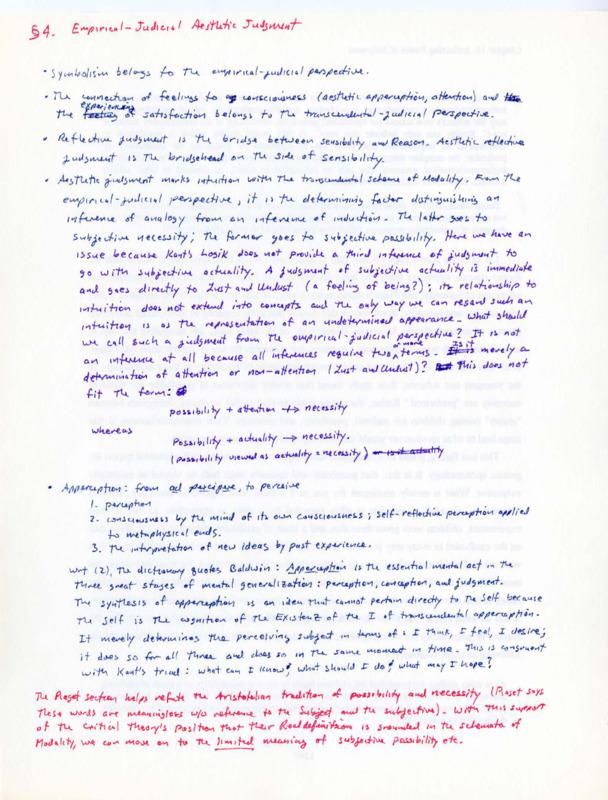 §4. Empirical-Judicial Aesthetic Judgment
• Symbolism belongs to the empirical-judicial perspective.
• The connection of feelings to consciousness (aesthetic apperception, attention) and
the experiencing of satisfaction belongs to the transcendental-judicial perspective.
• Reflective judgment is the bridge between sensibility and Reason. Aesthetic reflective
judgment is the bridgehead on the side of sensibility.
• Aesthetic judgment marks intuition with the transcendental schema of Modality. From the
empirical-judicial perspective, it is the determining factor distinguishing an
inference of analogy from an inference of induction. The latter goes to
subjective necessity; the former goes to subjective possibility. Here we have an
issue because Kant's Logik does not provide a third inference of judgment to
go with subjective actuality. A judgment of subjective actuality is immediate
and goes directly to Lust and Unlust (a feeling of being?); its relationship to
intuition does not extend into concepts and the only way we can regard such an
intuition is as the representation of an undetermined appearance. What should
we call such a judgment from the empirical-judicial perspective? It is not
an inference at all because all inferences require two or more terms. Is it merely a
determination of attention or non-attention (Lust and Unlust)? This does not
fit the form:
possibility + attention → necessity
whereas
Possibility + actuality → necessity.
(possibility viewed as actuality = necessity) or is it actually
• Apperception: from ad percipere, to perceive
1. perception
2. consciousness by the mind of its own consciousness; self-reflective perception applied
to metaphysical ends.
3. the interpretation of new ideas by past experience.
wrt (2), the dictionary quotes Baldwin: Apperception is the essential mental act in the
three great stages of mental generalization: perception, conception, and judgment.
The synthesis of apperception is an idea that cannot pertain directly to the Self because
the Self is the cognition of the Existenz of the I of transcendental apperception.
It merely determines the perceiving subject in terms of: I think, I feel, I desire;
it does so for all three and does so in the same moment in time. This is congruent
with Kant's triad: what can I know? what should I do? what may I hope?
The Piaget section helps refute the Aristotelian tradition of possibility and necessity (Piaget says
these words are meaningless w/o reference to the Subject and the subjective). With this support
of the Critical Theory's position that their Realdefinition is grounded in the schemata of
Modality, we can move on to the limited meaning of subjective possibility etc.